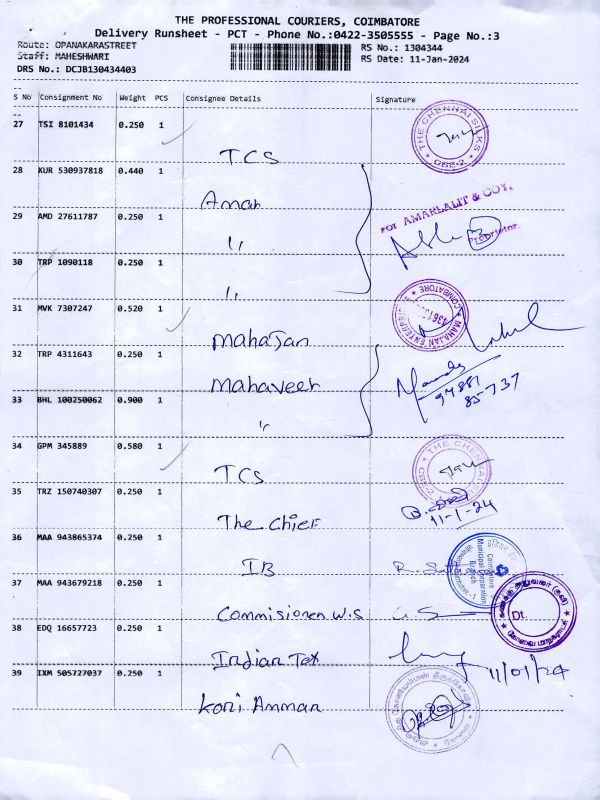 THE PROFESSIONAL COURIERS, COIMBATORE
Delivery Runsheet - PCT - Phone No.:0422-3505555 - Page No.:3
Route: OPANAKARASTREET
RS No.: 1304344
Staff: MAHESHWARI
RS Date: 11-Jan-2024
DRS No.: DCJB130434403
S No Consignment No Weight PCS Consignee Details Signature
27 TSI 8101434 0.250 1
THE CHENNAI SILKS
CBE-2
TCS
28 KUR 530937818 0.440 1
Amar
For AMARLALIT & COY.
29 AMD 27611787 0.250 1
Proprietor
"
30 TRP 1090118 0.250 1
"
31 MVK 7307247 0.520 1
MAHAJAN ENTERPRISES COIMBATORE
mahajan
32 TRP 4311643 0.250 1
Mahaveer
94881
85-737
33 BHL 100250062 0.900 1
"
34 GPM 345889 0.580 1
THE CHENNAI SILKS
CBE-2
TCS
35 TRZ 150740307 0.250 1
11-1-24
The chief
36 MAA 943865374 0.250 1
Coimbatore
Municipal Corporation
IB
37 MAA 943679218 0.250 1
Dt.
Commisioner W.S
38 EDQ 16657723 0.250 1
Indian Tex
11/01/24
39 IXM 505727037 0.250 1
Koni Amman